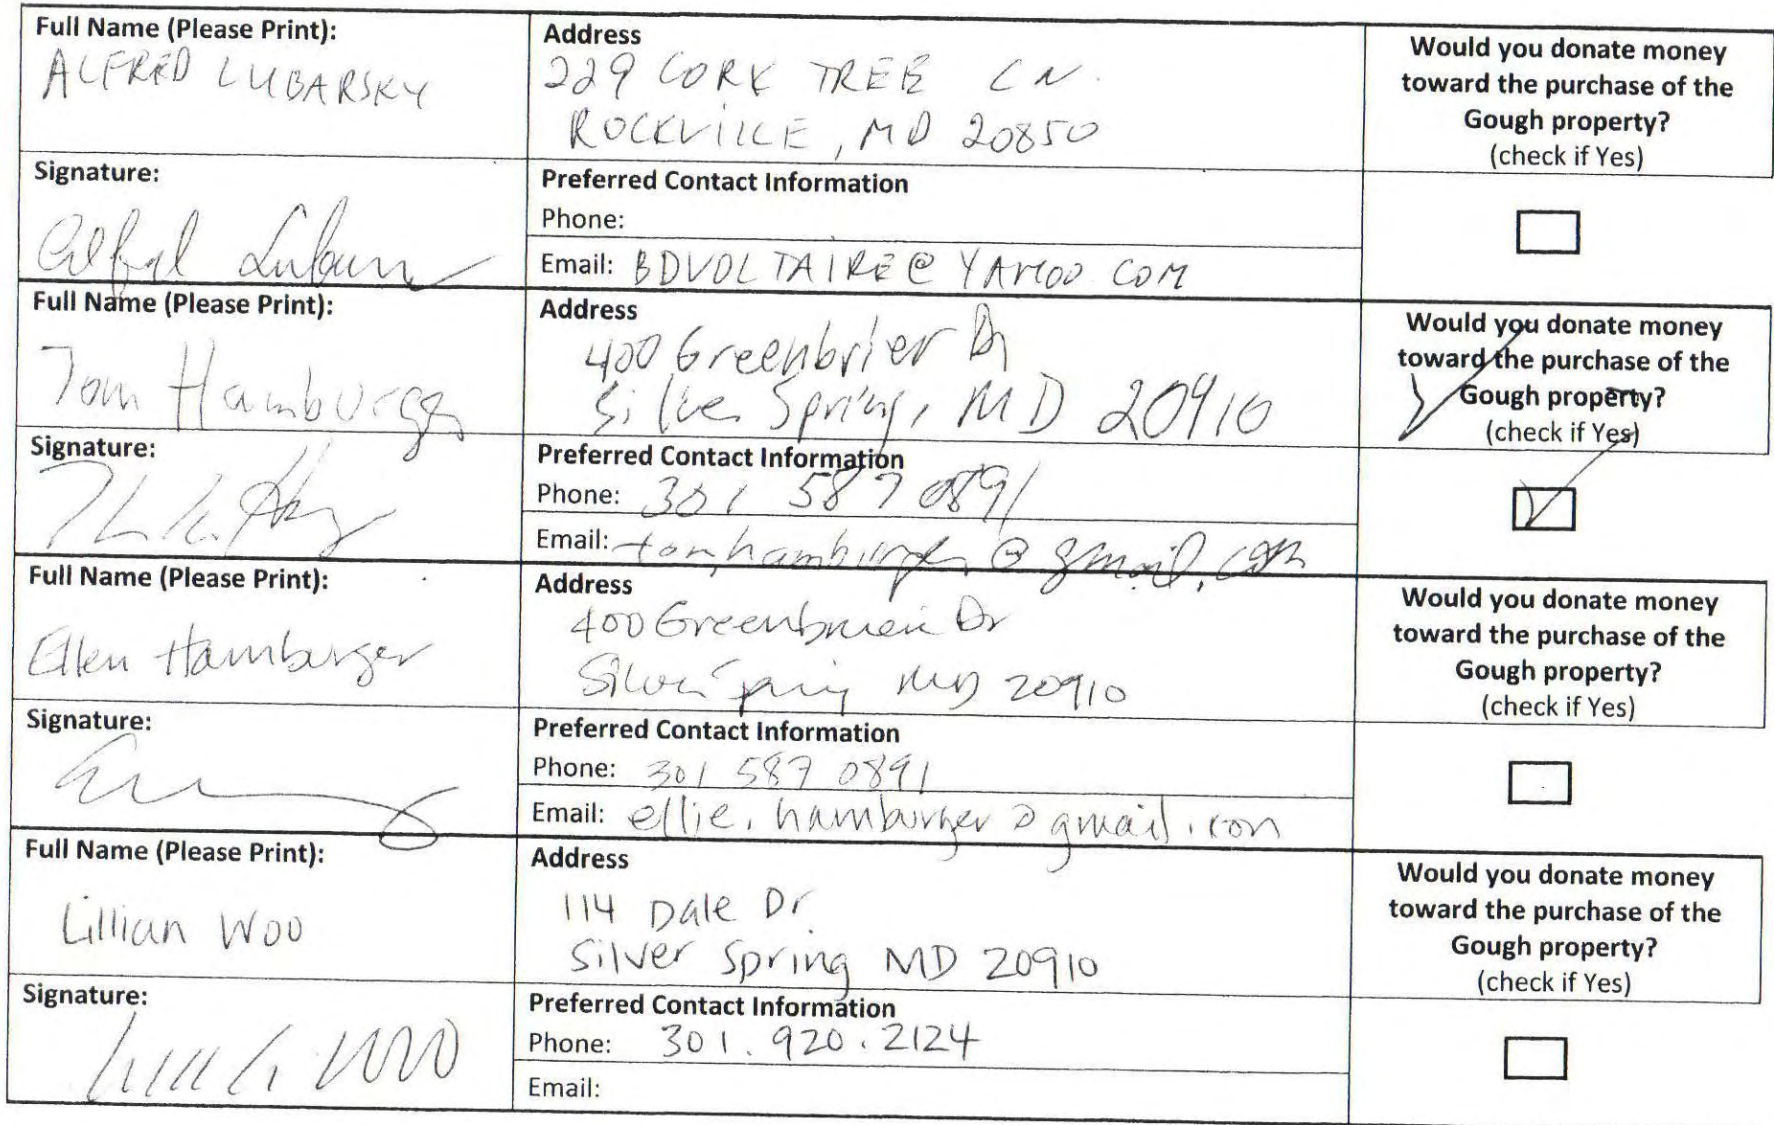 Full Name (Please Print):
ALFRED LUBARSKY
Address
229 CORK TREE LN.
ROCKVILLE, MD 20850
Would you donate money
toward the purchase of the
Gough property?
(check if Yes)
Signature:
Preferred Contact Information
Phone:
Email: BDVOLTAIRE@YAHOO.COM
Full Name (Please Print):
Tom Hamburger
Address
400 Greenbrier Dr
Silver Spring, MD 20910
Would you donate money
toward the purchase of the
Gough property?
(check if Yes)
Signature:
Preferred Contact Information
Phone: 301 587 0891
Email: tom.hamburger@gmail.com
Full Name (Please Print):
Ellen Hamburger
Address
400 Greenbrier Dr
Silver Spring MD 20910
Would you donate money
toward the purchase of the
Gough property?
(check if Yes)
Signature:
Preferred Contact Information
Phone: 301 587 0891
Email: ellie.hamburger@gmail.com
Full Name (Please Print):
Lillian Woo
Address
114 Dale Dr.
Silver Spring MD 20910
Would you donate money
toward the purchase of the
Gough property?
(check if Yes)
Signature:
Preferred Contact Information
Phone: 301.920.2124
Email: